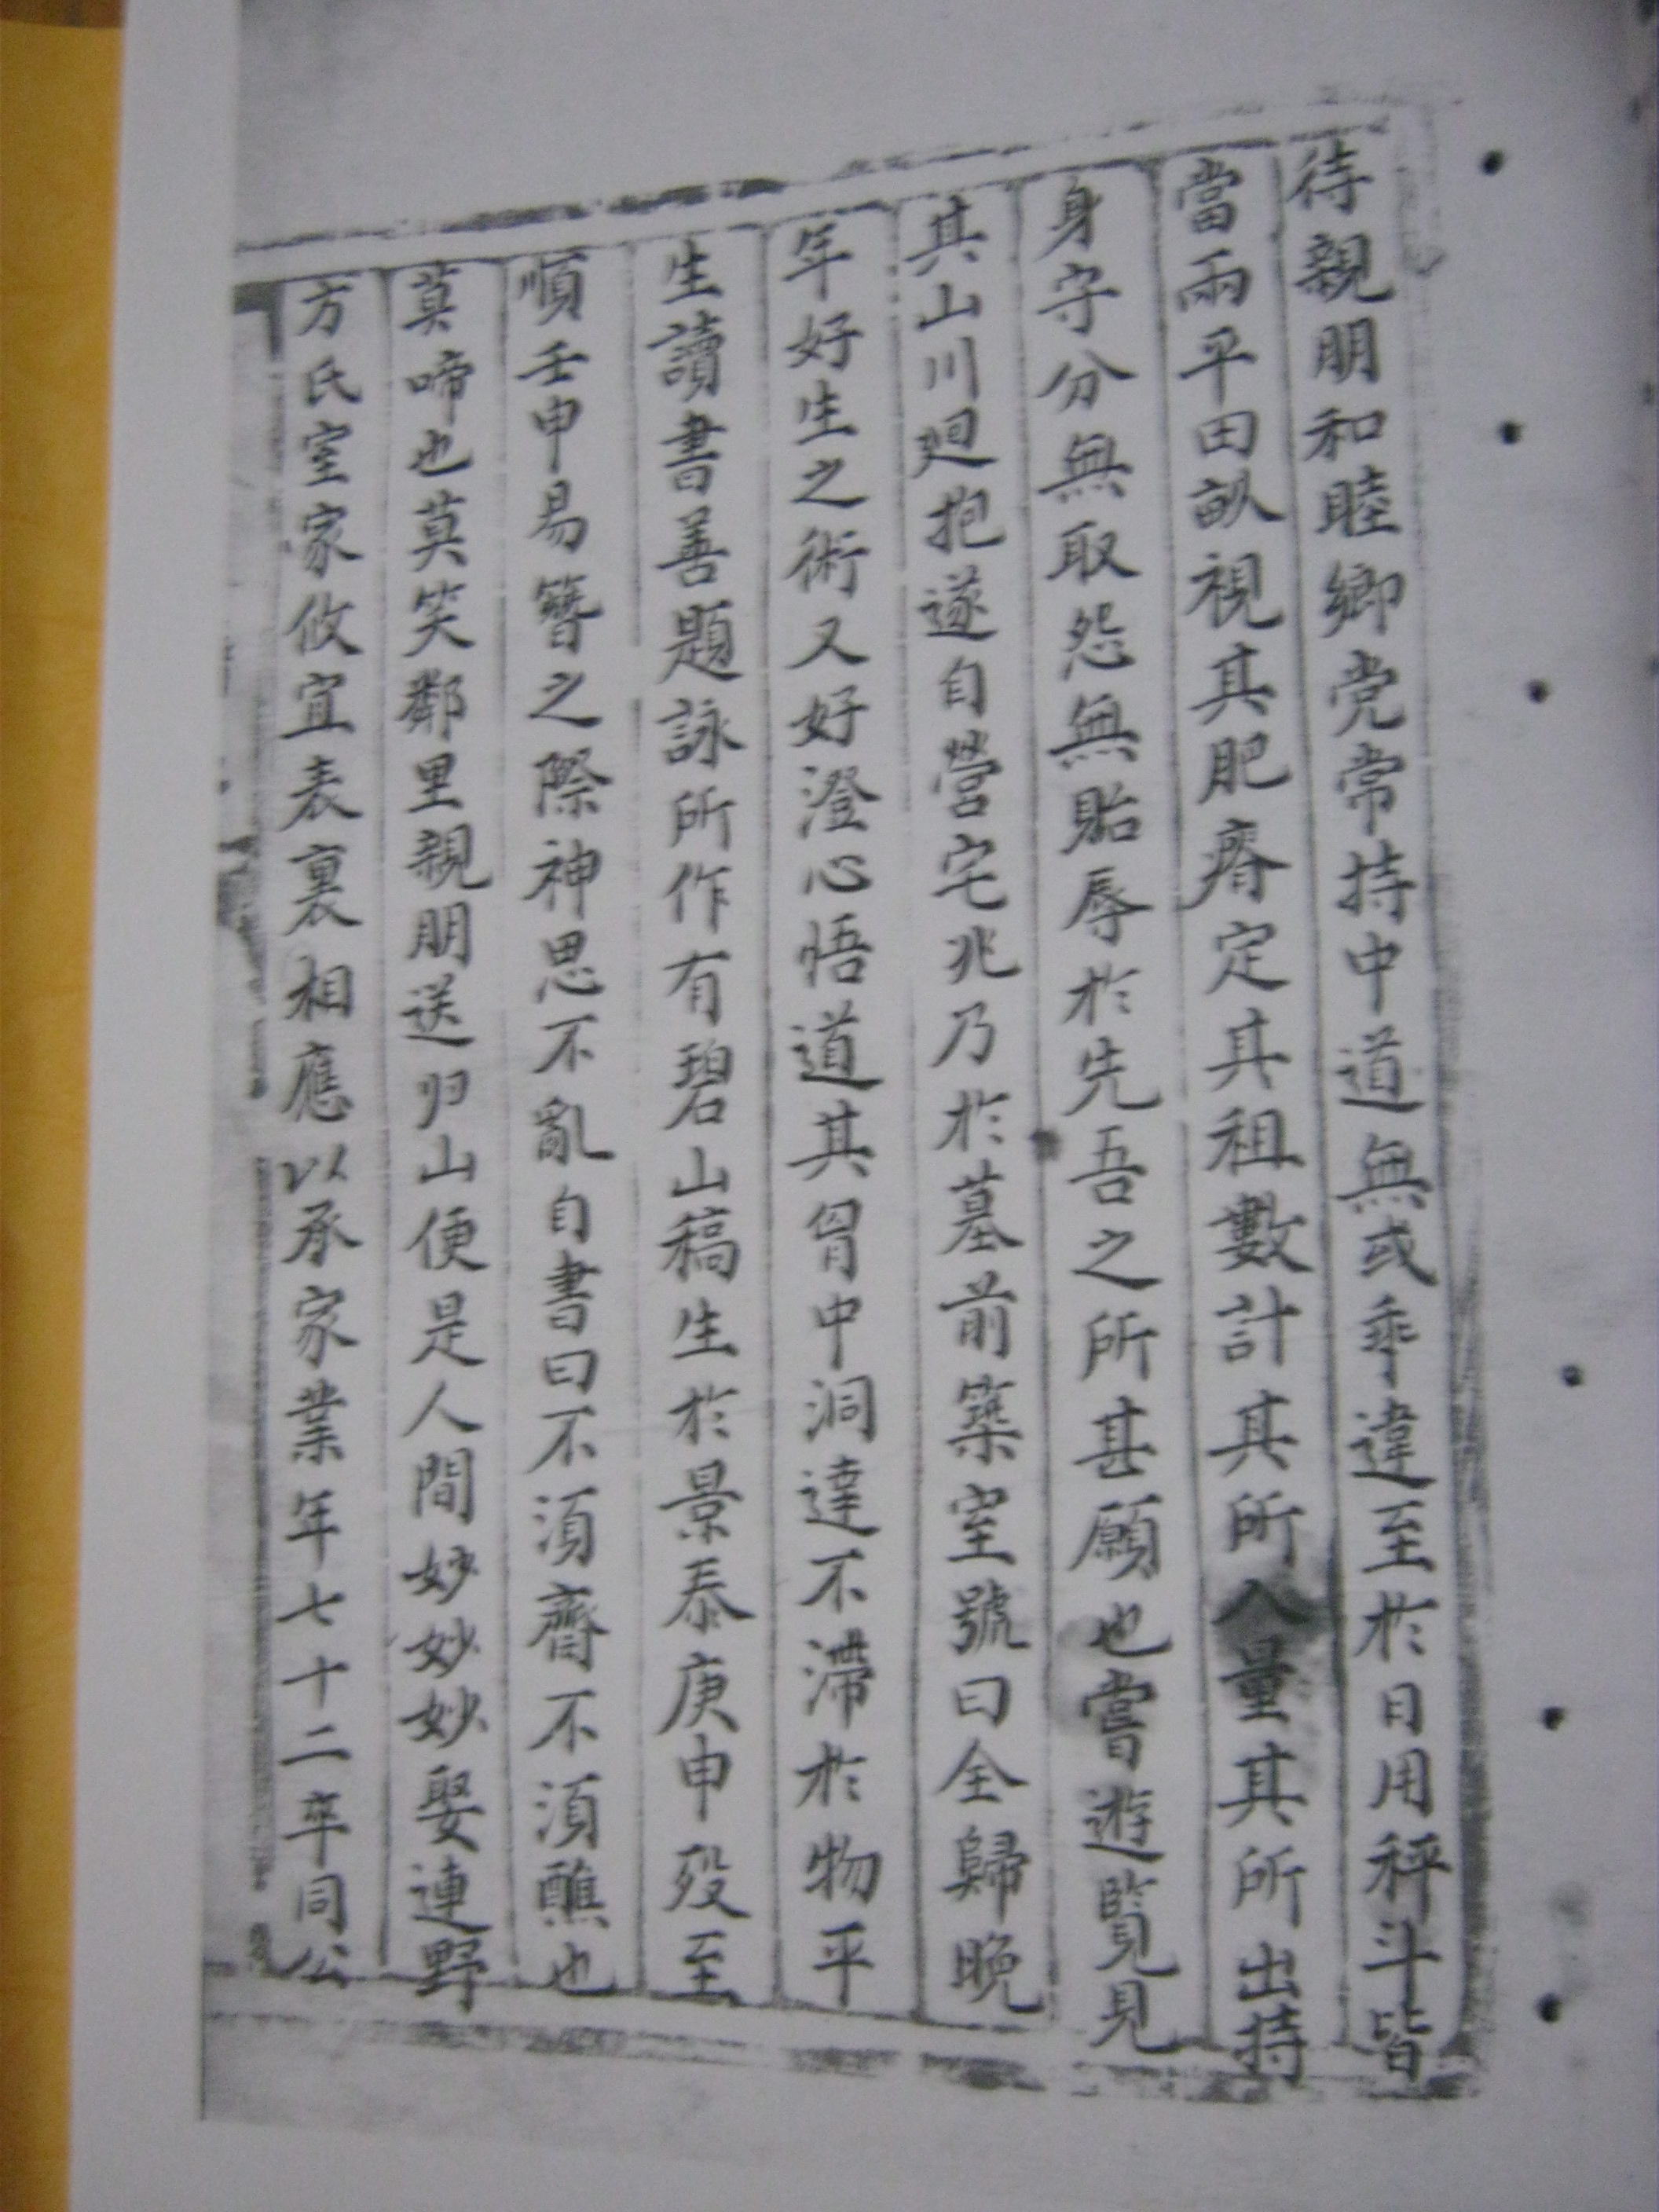 待親朋和睦鄉党常持中道無或乖違至於日用秤斗皆
當兩平田畝視其肥瘠定其租數計其所入量其所出持
身守分無取怨無貽辱於先吾之所甚願也嘗遊覧見
其山川廻抱遂自營宅兆乃於墓前築室號曰全歸晚
年好生之術又好澄心悟道其胷中洞達不滯於物平
生讀書善題詠所作有碧山稿生於景泰庚申殁至
順壬申易簪之際神思不亂自書曰不須齋不須醮也
莫啼也莫笑鄰里親朋送归山便是人間妙妙妙娶連野
方氏室家攸宜表裏相應以承家業年七十二卒同公